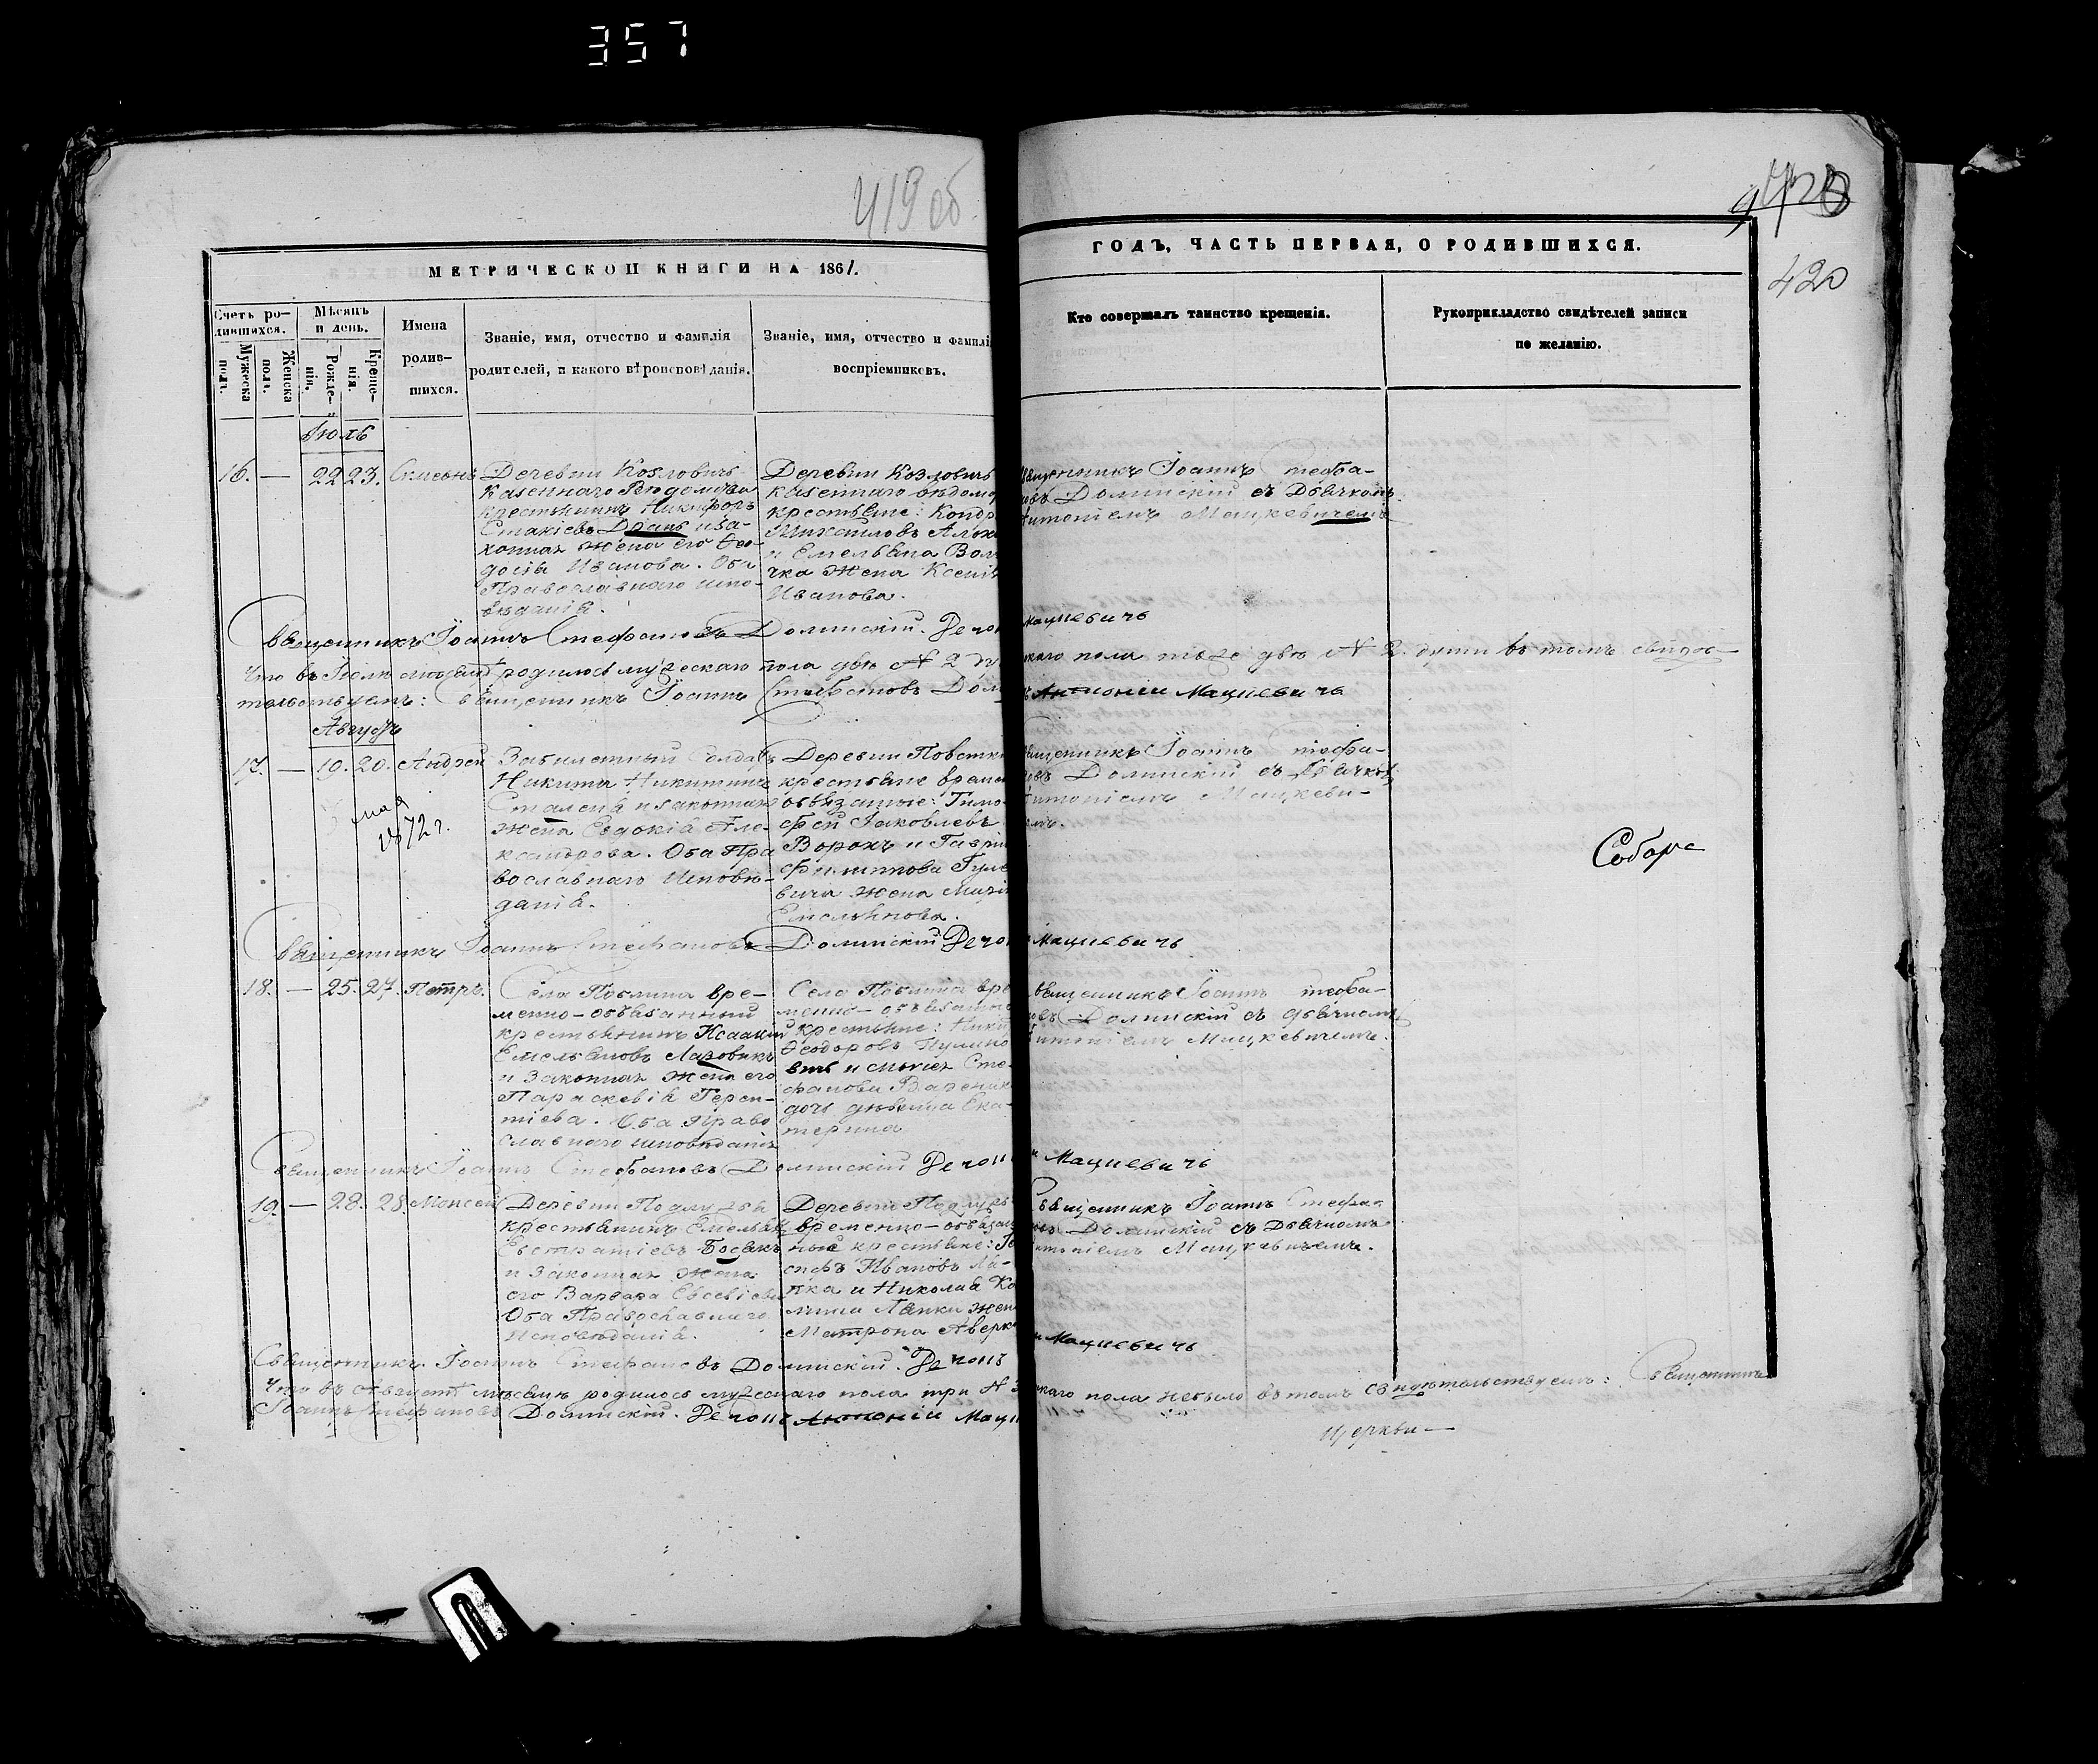 357
419 об
420
420
МЕТРИЧЕСКОЙ КНИГИ НА 1861.
ГОДЪ, ЧАСТЬ ПЕРВАЯ, О РОДИВШИХСЯ.
Счетъ ро-
дившихся.
Мужеска
полъ.
Женска
полъ.
Мѣсяцъ
и день.
Рожде-
нія.
Креще-
нія.
Имена
родив-
шихся.
Званіе, имя, отчество и фамилія
родителей, и какого вѣроисповѣданія.
Званіе, имя, отчество и фамилі
воспріемниковъ.
Кто совершалъ таинство крещенія.
Рукоприкладство свидѣтелей записи
по желанію.
Іюль
16. — 22 23. Симеонъ
Деревни Козловичъ
казеннаго Вѣдомства
крестьянинъ Никифоръ
Драпъ и за-
конная жена его Ѳео-
досія Иванова. Оба
Православнаго испо-
вѣданія.
Деревни Козловичъ
казеннаго вѣдомс
крестьяне: Кондр
Михаиловъ
и Емельяна Вол
чка жена Ксенія
Иванова.
священникъ Іоаннъ Стефа-
новъ Долинскій съ Дьячкомъ
Антоніемъ Мацкевичемъ
Священникъ Іоаннъ Стефановъ Долинскій.
Мацкевичъ
Что въ Іюлѣ мѣсяцѣ родилось мужескаго пола двѣ № 2
скаго пола тоже двѣ № 2. души въ томъ свидѣ-
тельствуемъ: Священникъ Іоаннъ Стефановъ Дол
Антоній Мацкевичъ
Августъ
17. — 19. 20. Андрей
мая
1872 г.
Забилетный Солдатъ
Никита Никитинъ
и законная
жена Евдокія Але-
ксандрова. Оба Пра
вославнаго Исповѣ-
данія.
Деревни Повстки
крестьяне времен
обязанные: Тимо-
фей Іаковлевъ
Ворохъ и Гаврі
Филиппова Гуле
вича жена Марі
Емельянова.
священникъ Іоаннъ Стефа-
новъ Долинскій съ Дьячком
Антоніемъ Мацкеви-
чемъ.
Соборе
Священникъ Іоаннъ Стефановъ Долинскій
Мацкевичъ
18. — 25. 27. Петръ.
Села вре-
менно-обязанный
крестьянинъ Исаакій
Емельяновъ Лазовикъ
и Законная жена его
Параскевія Терен-
тіева. Оба Право
славнаго исповѣданія
Села вре
менно-обязанн
крестьяне: Ники
Ѳеодоровъ
и Сте-
фанова Вареник
дочь дѣвица Ека-
терина
Священникъ Іоаннъ Стефа-
новъ Долинскій съ дьячкомъ
Антоніемъ Мацкевичемъ.
Священникъ Іоаннъ Стефановъ Долинскій
Мацкевичъ
19. — 28. 28 Моисей
Деревни Подлужья
крестьянинъ Емельян
Евстратіевъ Босякъ
и Законная жена
его Варвара Евсевіева
Оба Православнаго
Исповѣданія.
Деревни Подлужья
временно-обязан
ные крестьяне: Іо
сифъ Ивановъ Ля-
пка и Николая Ко
Ляпки жен
Матрона Аверк
Священникъ Іоаннъ Стефа-
новъ Долинскій съ Дьячкомъ
Антоніемъ Мацкевичемъ.
Священникъ Іоаннъ Стефановъ Долинскій.
Мацкевичъ
Что въ Августѣ мѣсяцѣ родилось мужескаго пола три № 3
скаго пола небыло въ томъ свидѣтельствуемъ: Священникъ
Іоаннъ Стефановъ Долинскій. Антоній Мацк
Церкви —